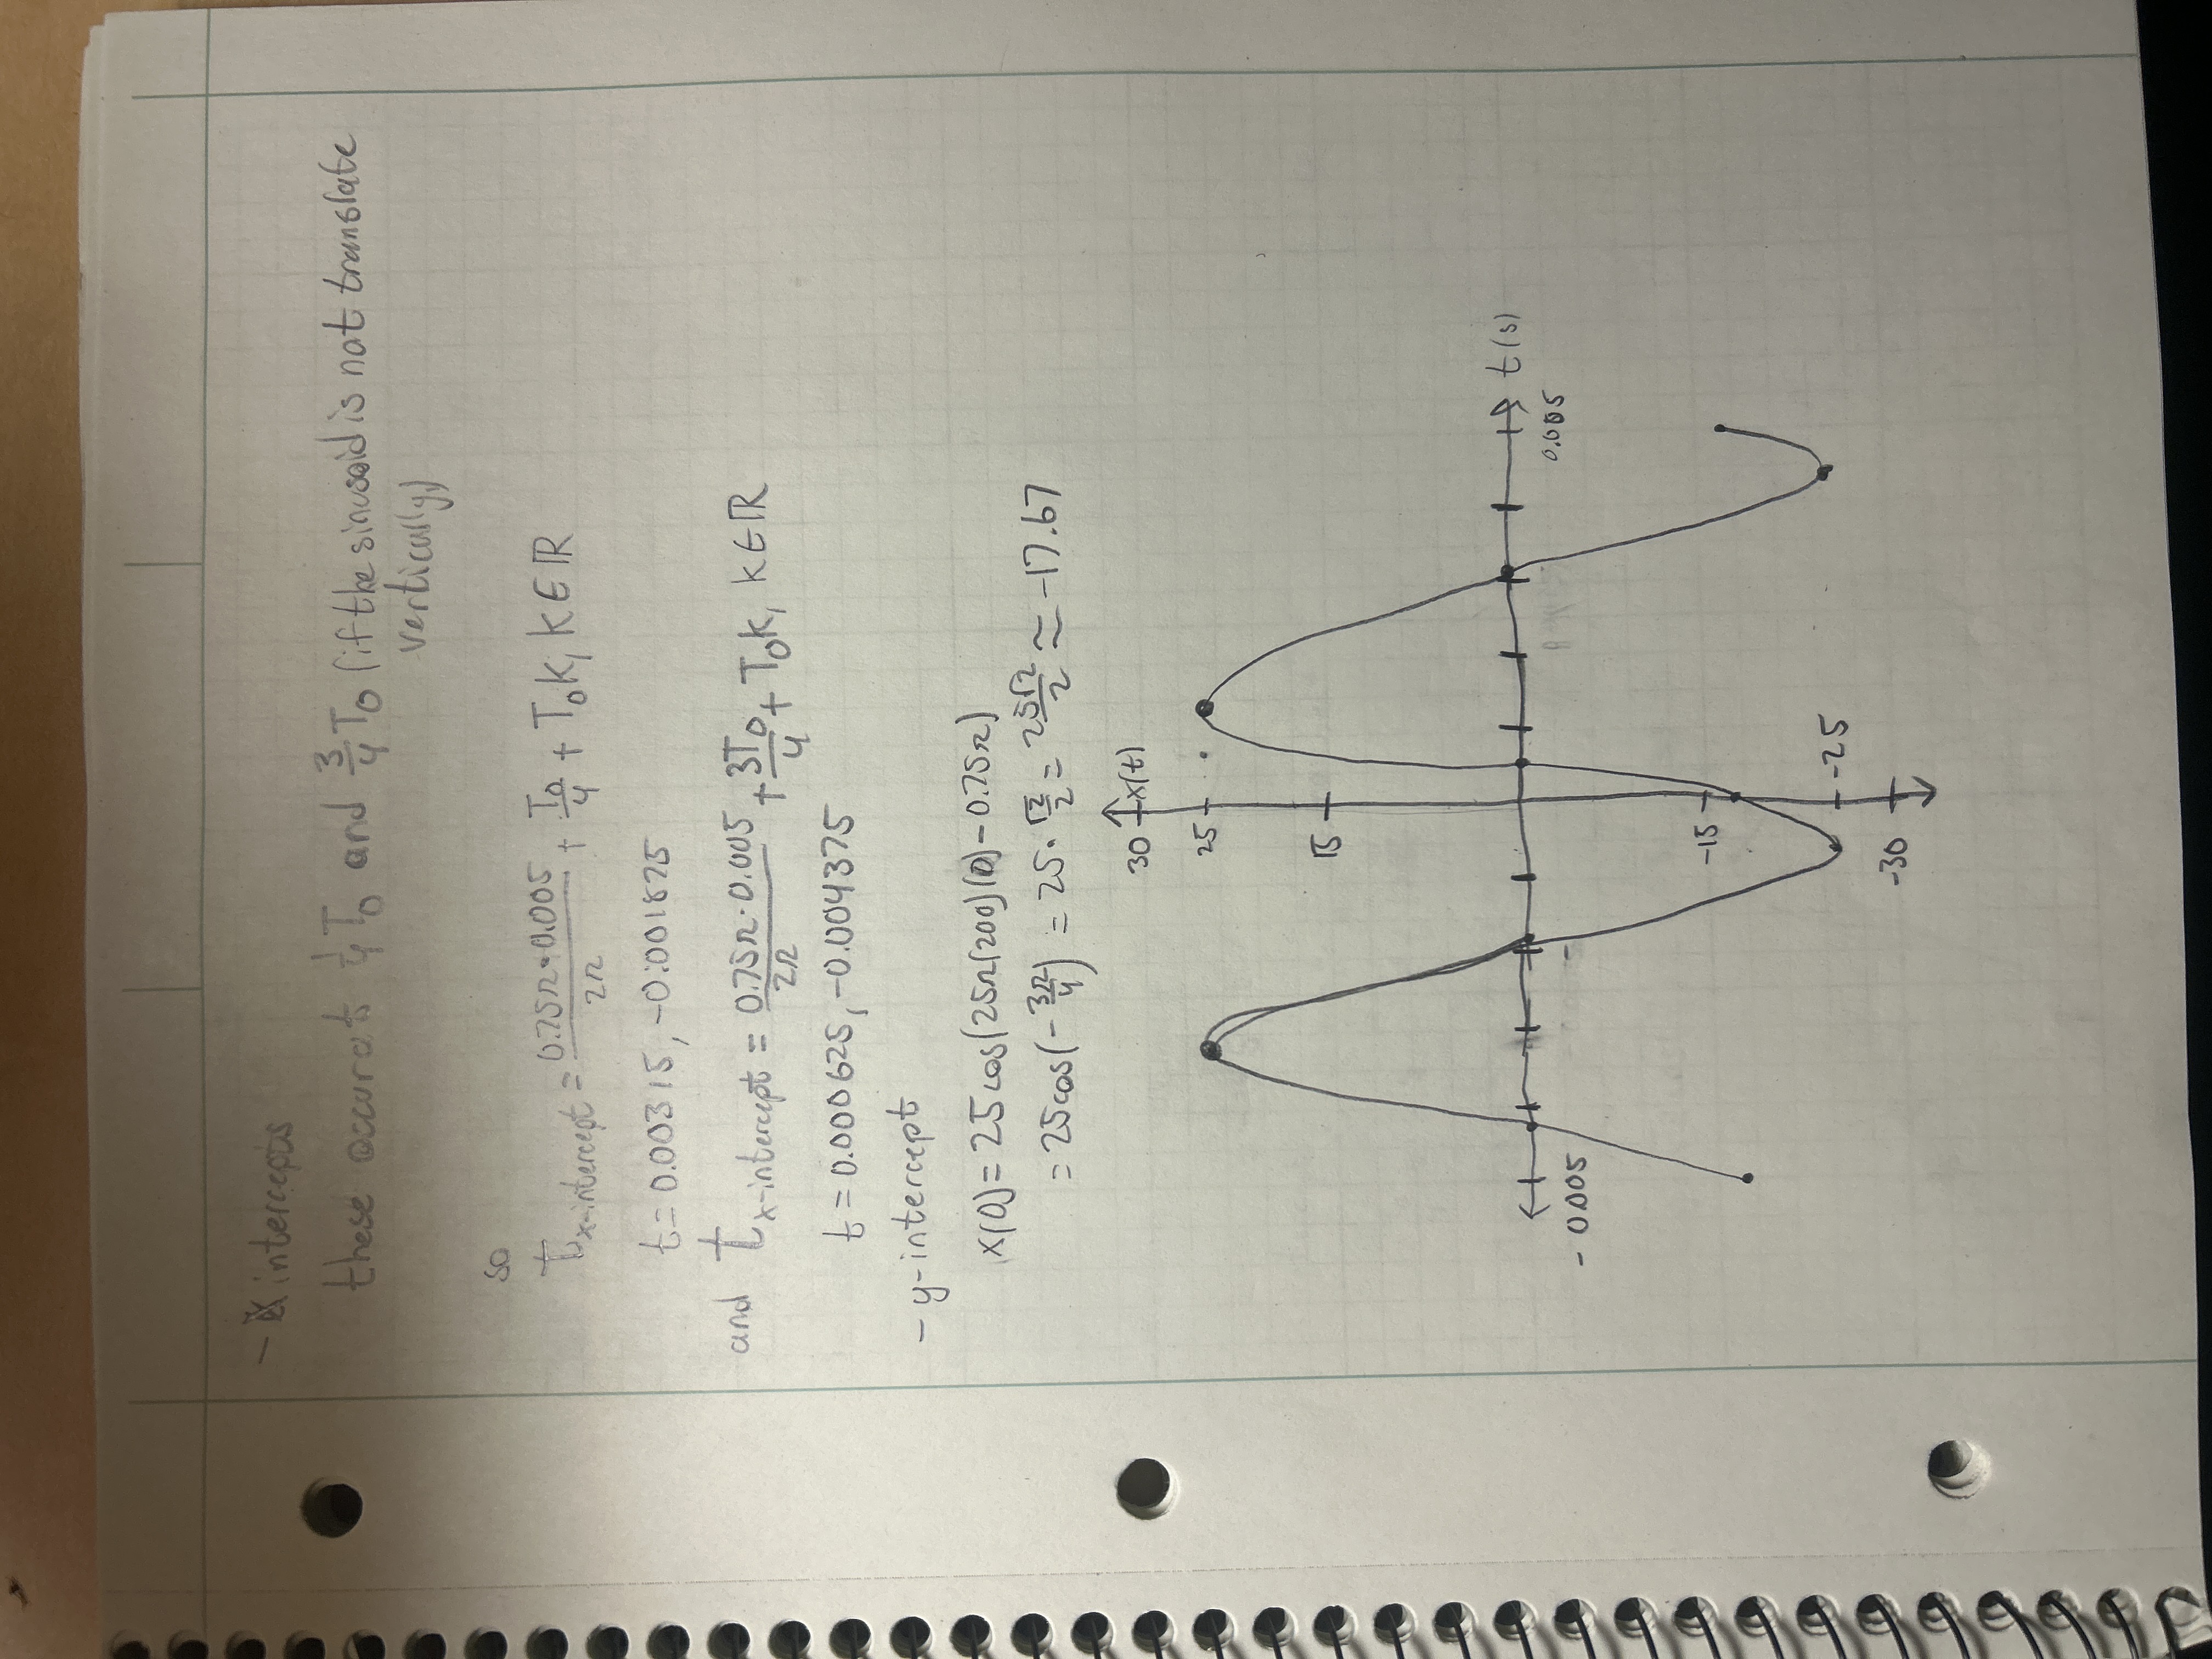 - x intercepts
these occur at 1/4 T₀ and 3/4 T₀ (if the sinusoid is not translate
vertically)
so
t x-intercept = 0.75π·0.005/2π + T₀/4 + T₀k, k∈ℝ
t = 0.00315, -0.001875
and t x-intercept = 0.75π·0.005/2π + 3T₀/4 + T₀k, k∈ℝ
t = 0.000625, -0.004375
- y-intercept
x(0) = 25cos(25π(200)(0) - 0.75π)
= 25cos(-3π/4) = 25·√2/2 = 25√2/2 ≈ -17.67
30 x(t)
25
15
t(s)
-0.005 0.005
-15
-25
-30